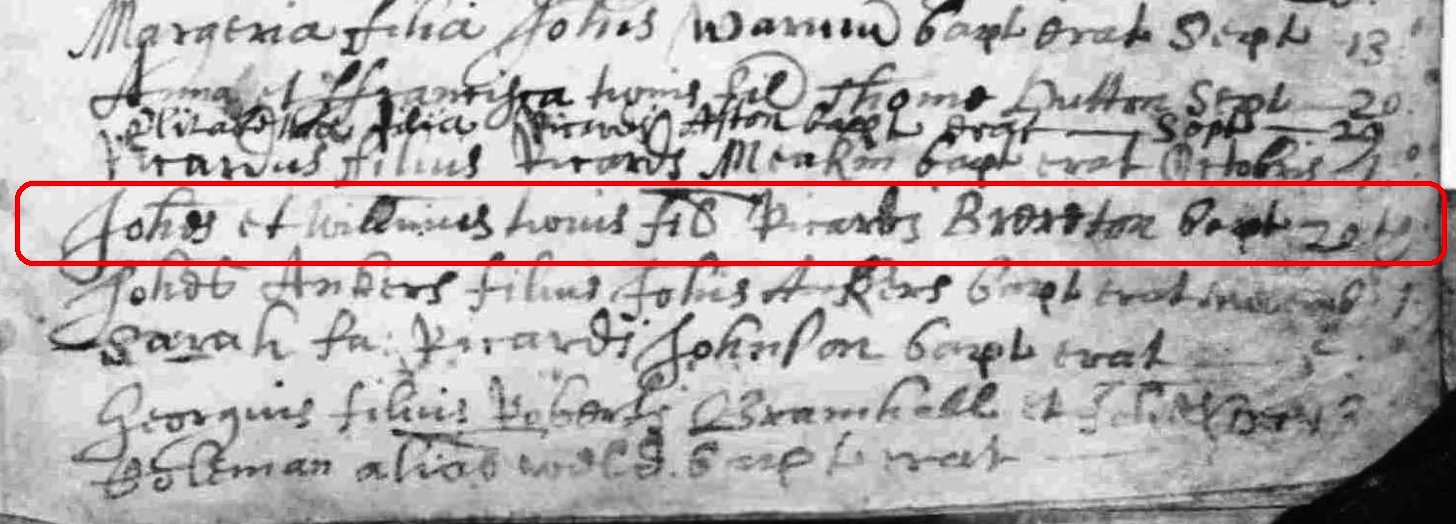 Margeria filia Johis Warmin bapt erat Sept 13
Anna et ffrancisca twins fil Thome Dutton Sept 20
Elizabetha filia Ricardi Aston bapt erat Sept 29
Ricardus filius Ricardi Meakin bapt erat Octobris 4
Johes et Willmus twins fil Ricardi Brereton bapt 20
Johes Ankers filius Johis Ankers bapt erat 1
Sarah fa: Ricardi Johnson bapt erat 5
Georgius filius Roberti Bramhall et
Boleman alias bapt erat